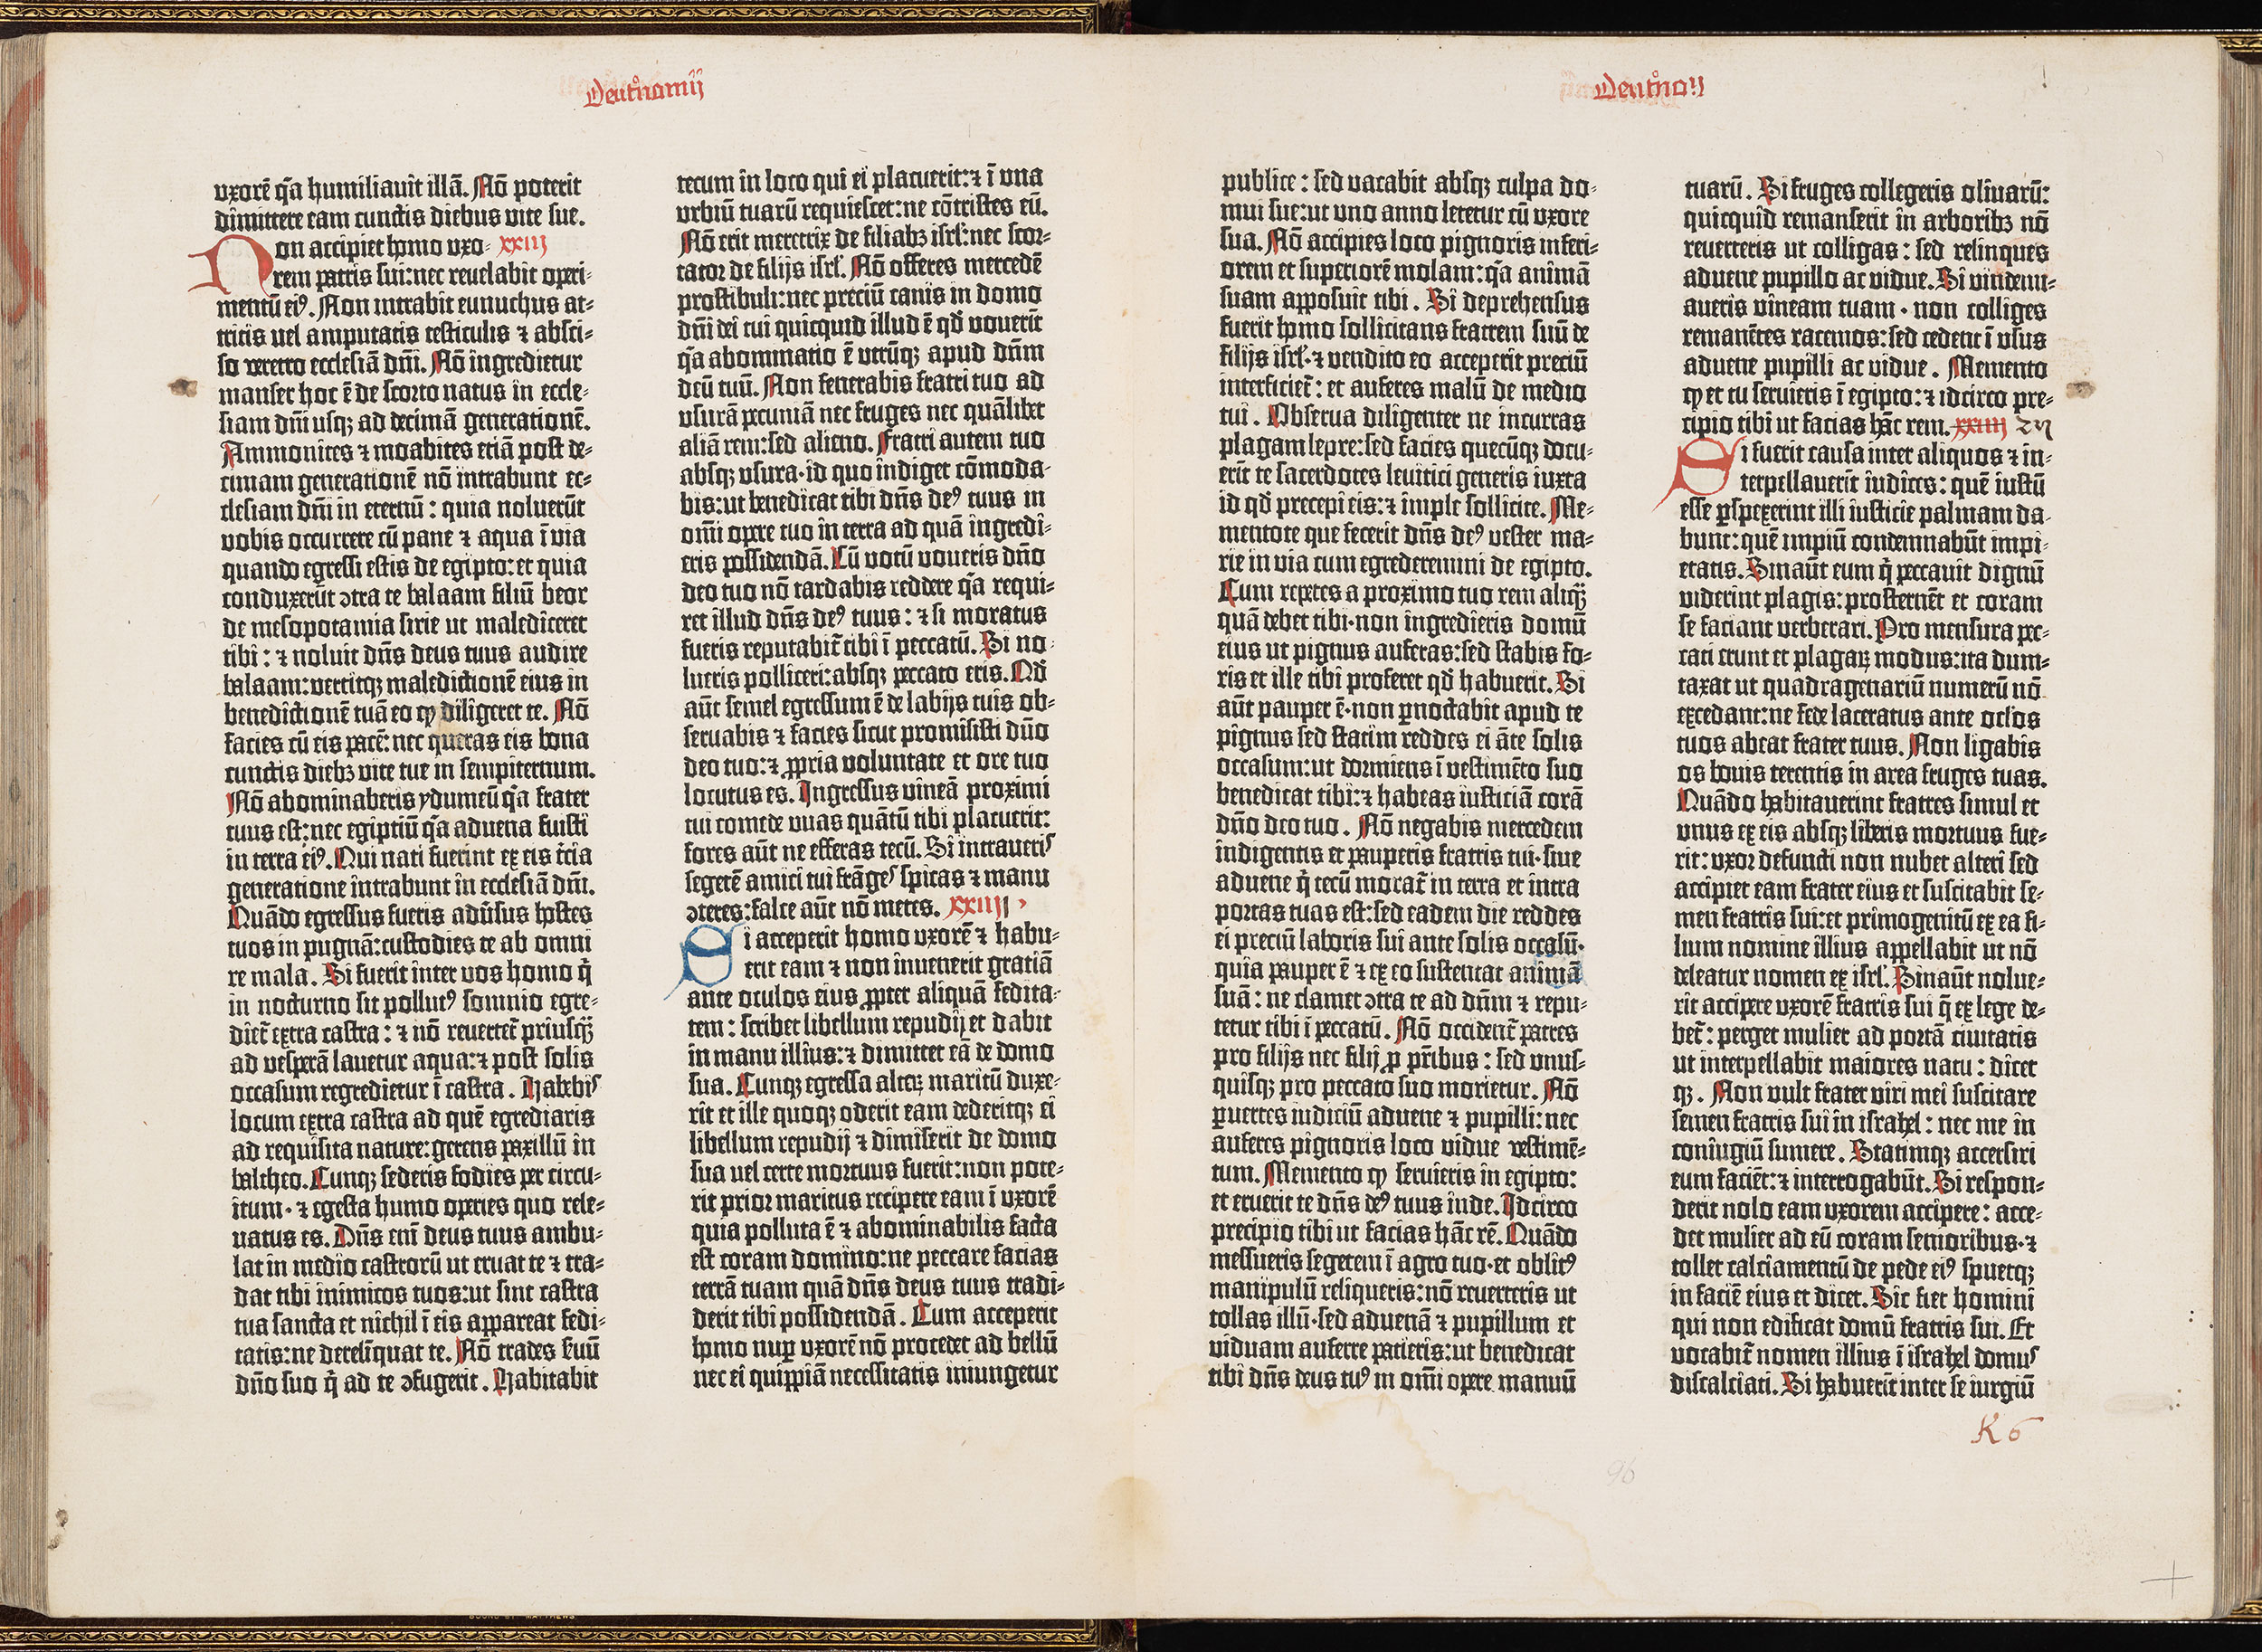 Deut'nomij
uxorē q̄a humiliauit illā. Nō poterit
dimittere eam cunctis diebus uite sue.
Non accipiet homo uxo- xxiij
rem patris sui: nec reuelabit operi-
mentū eiꝰ. Non intrabit eunuchus at-
tritis uel amputatis testiculis ⁊ absci-
so ueretro ecclesiā dn̄i. Nō ingredietur
manser hoc ē de scorto natus in eccle-
siam dn̄i usqꝫ ad decimā generationē.
Ammonites ⁊ moabites etiā post de-
cimam generationē nō intrabunt ec-
clesiam dn̄i in eternū: quia noluerūt
uobis occurrere cū pane ⁊ aqua ī uia
quando egressi estis de egipto: et quia
conduxerūt ↄtra te balaam filiū beor
de mesopotamia sirie ut malediceret
tibi: ⁊ noluit dn̄s deus tuus audire
balaam: uertitqꝫ maledictionē eius in
benedictionē tuā eo ꝙ diligeret te. Nō
facies cū eis pacē: nec queras eis bona
cunctis diebꝫ uite tue in sempiternum.
Nō abominaberis ydumeū q̄a frater
tuus est: nec egiptiū q̄a aduena fuisti
in terra eiꝰ. Qui nati fuerint ex eis t̄cia
generatione intrabunt in ecclesiā dn̄i.
Quādo egressus fueris adūsus hostes
tuos in pugnā: custodies te ab omni
re mala. Si fuerit inter uos homo q̄
in nocturno sit pollutꝰ somnio egre-
diet̄ extra castra: ⁊ nō reuertet̄ priusqꝫ
ad uesperā lauetur aqua: ⁊ post solis
occasum regredietur ī castra. Habebis
locum extra castra ad quē egrediaris
ad requisita nature: gerens paxillū in
baltheo. Cunqꝫ sederis fodies per circu-
itum· ⁊ egesta humo operies quo rele-
uatus es. Dn̄s eni deus tuus ambu-
lat in medio castrorū ut eruat te ⁊ tra-
dat tibi inimicos tuos: ut sint castra
tua sancta et nichil ī eis appareat fedi-
tatis: ne derelīquat te. Nō trades seruū
dn̄o suo q̄ ad te ↄfugerit. Habitabit
tecum in loco qui ei placuerit: ⁊ ī una
urbiū tuarū requiescet: ne cōtristes eū.
Nō erit meretrix de filiabꝫ isrl': nec scor-
tator de filijs isrl'. Nō offeres mercedē
prostibuli: nec preciū canis in domo
dn̄i dei tui quicquid illud ē qd̄ uouerit
q̄a abominatio ē utrūqꝫ apud dn̄m
deū tuū. Non fenerabis fratri tuo ad
usurā pecuniā nec fruges nec quālibet
aliā rem: sed alieno. Fratri autem tuo
absqꝫ usura· id quo indiget cōmoda-
bis: ut benedicat tibi dn̄s deꝰ tuus in
om̄i opere tuo in terra ad quā ingredi-
eris possidendā. Cū uotū uoueris dn̄o
deo tuo nō tardabis reddere q̄a requi-
ret illud dn̄s deꝰ tuus: ⁊ si moratus
fueris reputabit̄ tibi ī peccatū. Si no-
lueris polliceri: absqꝫ peccato eris. Qd̄
aūt semel egressum ē de labijs tuis ob-
seruabis ⁊ facies sicut promisisti dn̄o
deo tuo: ⁊ ꝓpria uoluntate et ore tuo
locutus es. Ingressus uineā proximi
tui comede uuas quātū tibi placuerit:
foras aūt ne efferas tecū. Si intraueris
segetē amici tui frāges spicas ⁊ manu
ↄteres: falce aūt nō metes. xxiiij
Si acceperit homo uxorē ⁊ habu-
erit eam ⁊ non inuenerit gratiā
ante oculos eius ꝓpter aliquā fedita-
tem: scribet libellum repudij et dabit
in manu illius: ⁊ dimittet eā de domo
sua. Cunqꝫ egressa alteꝝ maritū duxe-
rit et ille quoqꝫ oderit eam dederitqꝫ ei
libellum repudij ⁊ dimiserit de domo
sua uel certe mortuus fuerit: non pote-
rit prior maritus recipere eam ī uxorē
quia polluta ē ⁊ abominabilis facta
est coram domino: ne peccare facias
terrā tuam quā dn̄s deus tuus tradi-
derit tibi possidendā. Cum acceperit
homo nuꝑ uxorē nō procedet ad bellū
nec ei quippiā necessitatis iniungetur
Deut'noij
publice: sed uacabit absqꝫ culpa do-
mui sue: ut uno anno letetur cū uxore
sua. Nō accipies loco pignoris inferi-
orem et superiorē molam: q̄a animā
suam apposuit tibi. Si deprehensus
fuerit homo sollicitans fratrem suū de
filijs isrl'· ⁊ uendito eo acceperit preciū
interficiet̄: et auferes malū de medio
tui. Obserua diligenter ne incurras
plagam lepre: sed facies quecūqꝫ docu-
erīt te sacerdotes leuitici generis iuxta
id qd̄ precepi eis: ⁊ imple sollicite. Me-
mentote que fecerit dn̄s deꝰ uester ma-
rie in uia cum egrederemini de egipto.
Cum repetes a proximo tuo rem aliqꝫ
quā debet tibi· non ingredieris domū
eius ut pignus auferas: sed stabis fo-
ris et ille tibi proferet qd̄ habuerit. Si
aūt pauper ē· non ꝑnoctabit apud te
pignus sed statim reddes ei āte solis
occasum: ut dormiens ī uestimēto suo
benedicat tibi: ⁊ habeas iusticiā corā
dn̄o deo tuo. Nō negabis mercedem
indigentis et pauperis fratris tui· siue
aduene q̄ tecū morat̄ in terra et intra
portas tuas est: sed eadem die reddes
ei preciū laboris sui ante solis occasū·
quia pauper ē ⁊ ex eo sustentat animā
suā: ne clamet ↄtra te ad dn̄m ⁊ repu-
tetur tibi ī peccatū. Nō occident̄ patres
pro filijs nec filij ꝓ pr̄ibus: sed unus-
quisqꝫ pro peccato suo morietur. Nō
ꝑuertes iudiciū aduene ⁊ pupilli: nec
auferes pignoris loco uidue uestimē-
tum. Memento ꝙ seruieris in egipto:
et eruerit te dn̄s deꝰ tuus inde. Idcirco
precipio tibi ut facias hāc rē. Quādo
messueris segetem ī agro tuo· et oblitꝰ
manipulū reliqueris: nō reuerteris ut
tollas illū· sed aduenā ⁊ pupillum et
uiduam auferre patieris: ut benedicat
tibi dn̄s deus tuꝰ in om̄i opere manuū
tuarū. Si fruges collegeris oliuarū:
quicquid remanserit in arboribꝫ nō
reuerteris ut colligas: sed relinques
aduene pupillo ac uidue. Si uindemi-
aueris uineam tuam· non colliges
remanētes racemos: sed cedent ī usus
aduene pupilli ac uidue. Memento
ꝙ et tu seruieris ī egipto: ⁊ idcirco pre-
cipio tibi ut facias hāc rem. xxiiij
Si fuerit causa inter aliquos ⁊ in-
terpellauerit iudices: quē iustū
esse ꝑspexerint illi iusticie palmam da-
bunt: quē impiū condemnabūt impi-
etatis. Sinaūt eum q̄ peccauit dignū
uiderint plagis: prosternēt et coram
se faciant uerberari. Pro mensura pec-
cati erunt et plagaꝝ modus: ita dum-
taxat ut quadragenariū numerū nō
excedant: ne fede laceratus ante ocl'os
tuos abeat frater tuus. Non ligabis
os bouis terentis in area fruges tuas.
Quādo habitauerint fratres simul et
unus ex eis absqꝫ liberis mortuus fue-
rit: uxor defuncti non nubet alteri sed
accipiet eam frater eius et suscitabit se-
men fratris sui: et primogenitū ex ea fi-
lium nomine illius appellabit ut nō
deleatur nomen ex isrl'. Sinaūt nolue-
rit accipere uxorē fratris sui q̄ ex lege de-
bet̄: perget mulier ad portā ciuitatis
ut interpellabit maiores natu: dicet
qꝫ. Non uult frater uiri mei suscitare
semen fratris sui in israhel: nec me in
coniugiū sumere. Statimqꝫ accersiri
eum faciēt: ⁊ interrogabūt. Si respon-
derit nolo eam uxorem accipere: acce-
det mulier ad eū coram senioribus· ⁊
tollet calciamentū de pede eiꝰ spuetqꝫ
in faciē eius et dicet. Sic fiet homini
qui non edificat domū fratris sui. Et
uocabit̄ nomen illius ī israhel domus
discalciati. Si habuerīt inter se iurgiū
K 6
96
BOUND BY MATTHEWS